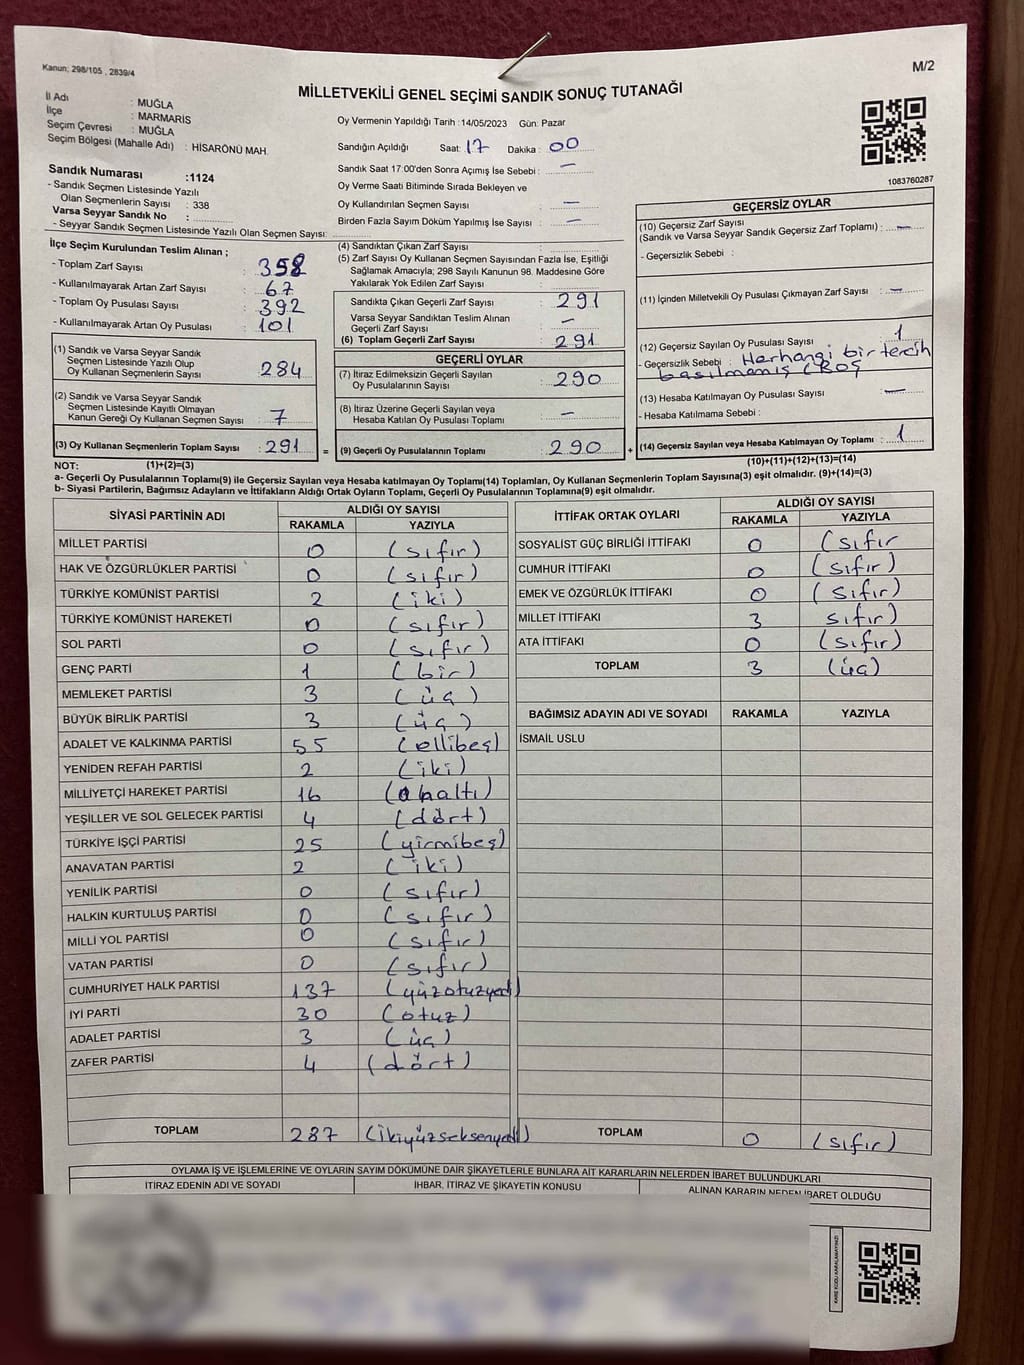 Kanun; 298/105 , 2839/4
M/2
MİLLETVEKİLİ GENEL SEÇİMİ SANDIK SONUÇ TUTANAĞI
İl Adı : MUĞLA
İlçe : MARMARİS
Seçim Çevresi : MUĞLA
Seçim Bölgesi (Mahalle Adı) : HİSARÖNÜ MAH.
Sandık Numarası :1124
- Sandık Seçmen Listesinde Yazılı
Olan Seçmenlerin Sayısı : 338
Varsa Seyyar Sandık No :
- Seyyar Sandık Seçmen Listesinde Yazılı Olan Seçmen Sayısı:
Oy Vermenin Yapıldığı Tarih :14/05/2023 Gün: Pazar
Sandığın Açıldığı Saat: 17 Dakika : 00
Sandık Saat 17:00'den Sonra Açımış İse Sebebi : —
Oy Verme Saati Bitiminde Sırada Bekleyen ve
Oy Kullandırılan Seçmen Sayısı : —
Birden Fazla Sayım Döküm Yapılmış İse Sayısı : —
1083760287
İlçe Seçim Kurulundan Teslim Alınan ;
- Toplam Zarf Sayısı : 358
- Kullanılmayarak Artan Zarf Sayısı : 67
- Toplam Oy Pusulası Sayısı : 392
- Kullanılmayarak Artan Oy Pusulası : 101
(1) Sandık ve Varsa Seyyar Sandık
Seçmen Listesinde Yazılı Olup
Oy Kullanan Seçmenlerin Sayısı : 284
(2) Sandık ve Varsa Seyyar Sandık
Seçmen Listesinde Kayıtlı Olmayan
Kanun Gereği Oy Kullanan Seçmen Sayısı : 7
(3) Oy Kullanan Seçmenlerin Toplam Sayısı : 291 =
(4) Sandıktan Çıkan Zarf Sayısı :
(5) Zarf Sayısı Oy Kullanan Seçmen Sayısından Fazla İse, Eşitliği
Sağlamak Amacıyla; 298 Sayılı Kanunun 98. Maddesine Göre
Yakılarak Yok Edilen Zarf Sayısı :
Sandıkta Çıkan Geçerli Zarf Sayısı : 291
Varsa Seyyar Sandıktan Teslim Alınan
Geçerli Zarf Sayısı : —
(6) Toplam Geçerli Zarf Sayısı : 291
GEÇERLİ OYLAR
(7) İtiraz Edilmeksizin Geçerli Sayılan
Oy Pusulalarının Sayısı : 290
(8) İtiraz Üzerine Geçerli Sayılan veya
Hesaba Katılan Oy Pusulası Toplamı : —
(9) Geçerli Oy Pusulalarının Toplamı : 290 +
GEÇERSİZ OYLAR
(10) Geçersiz Zarf Sayısı
(Sandık ve Varsa Seyyar Sandık Geçersiz Zarf Toplamı) : —
- Geçersizlik Sebebi :
(11) İçinden Milletvekili Oy Pusulası Çıkmayan Zarf Sayısı : —
(12) Geçersiz Sayılan Oy Pusulası Sayısı : 1
- Geçersizlik Sebebi : Herhangi bir tercih
basılmamış (BOŞ
(13) Hesaba Katılmayan Oy Pusulası Sayısı : —
- Hesaba Katılmama Sebebi :
(14) Geçersiz Sayılan veya Hesaba Katılmayan Oy Toplamı : 1
NOT: (1)+(2)=(3)
(10)+(11)+(12)+(13)=(14)
a- Geçerli Oy Pusulalarının Toplamı(9) ile Geçersiz Sayılan veya Hesaba Katılmayan Oy Toplamı(14) Toplamları, Oy Kullanan Seçmenlerin Toplam Sayısına(3) eşit olmalıdır. (9)+(14)=(3)
b- Siyasi Partilerin, Bağımsız Adayların ve İttifakların Aldığı Ortak Oyların Toplamı, Geçerli Oy Pusulalarının Toplamına(9) eşit olmalıdır.
SİYASİ PARTİNİN ADI ALDIĞI OY SAYISI
RAKAMLA YAZIYLA
MİLLET PARTİSİ 0 (sıfır)
HAK VE ÖZGÜRLÜKLER PARTİSİ 0 (sıfır)
TÜRKİYE KOMÜNİST PARTİSİ 2 (iki)
TÜRKİYE KOMÜNİST HAREKETİ 0 (sıfır)
SOL PARTİ 0 (sıfır)
GENÇ PARTİ 1 (bir)
MEMLEKET PARTİSİ 3 (üç)
BÜYÜK BİRLİK PARTİSİ 3 (üç)
ADALET VE KALKINMA PARTİSİ 55 (ellibeş)
YENİDEN REFAH PARTİSİ 2 (iki)
MİLLİYETÇİ HAREKET PARTİSİ 16 (onaltı)
YEŞİLLER VE SOL GELECEK PARTİSİ 4 (dört)
TÜRKİYE İŞÇİ PARTİSİ 25 (yirmibeş)
ANAVATAN PARTİSİ 2 (iki)
YENİLİK PARTİSİ 0 (sıfır)
HALKIN KURTULUŞ PARTİSİ 0 (sıfır)
MİLLİ YOL PARTİSİ 0 (sıfır)
VATAN PARTİSİ 0 (sıfır)
CUMHURİYET HALK PARTİSİ 137 (yüzotuzyedi)
İYİ PARTİ 30 (otuz)
ADALET PARTİSİ 3 (üç)
ZAFER PARTİSİ 4 (dört)
TOPLAM 287 (ikiyüzseksenyedi)
İTTİFAK ORTAK OYLARI ALDIĞI OY SAYISI
RAKAMLA YAZIYLA
SOSYALİST GÜÇ BİRLİĞİ İTTİFAKI 0 (sıfır
CUMHUR İTTİFAKI 0 (sıfır)
EMEK VE ÖZGÜRLÜK İTTİFAKI 0 (sıfır)
MİLLET İTTİFAKI 3 sıfır)
ATA İTTİFAKI 0 (sıfır)
TOPLAM 3 (üç)
BAĞIMSIZ ADAYIN ADI VE SOYADI RAKAMLA YAZIYLA
İSMAİL USLU
TOPLAM 0 (sıfır)
OYLAMA İŞ VE İŞLEMLERİNE VE OYLARIN SAYIM DÖKÜMÜNE DAİR ŞİKAYETLERLE BUNLARA AİT KARARLARIN NELERDEN İBARET BULUNDUKLARI
İTİRAZ EDENİN ADI VE SOYADI İHBAR, İTİRAZ VE ŞİKAYETİN KONUSU ALINAN KARARIN NEDEN İBARET OLDUĞU
KARE KODU KARALAMAYINIZ!